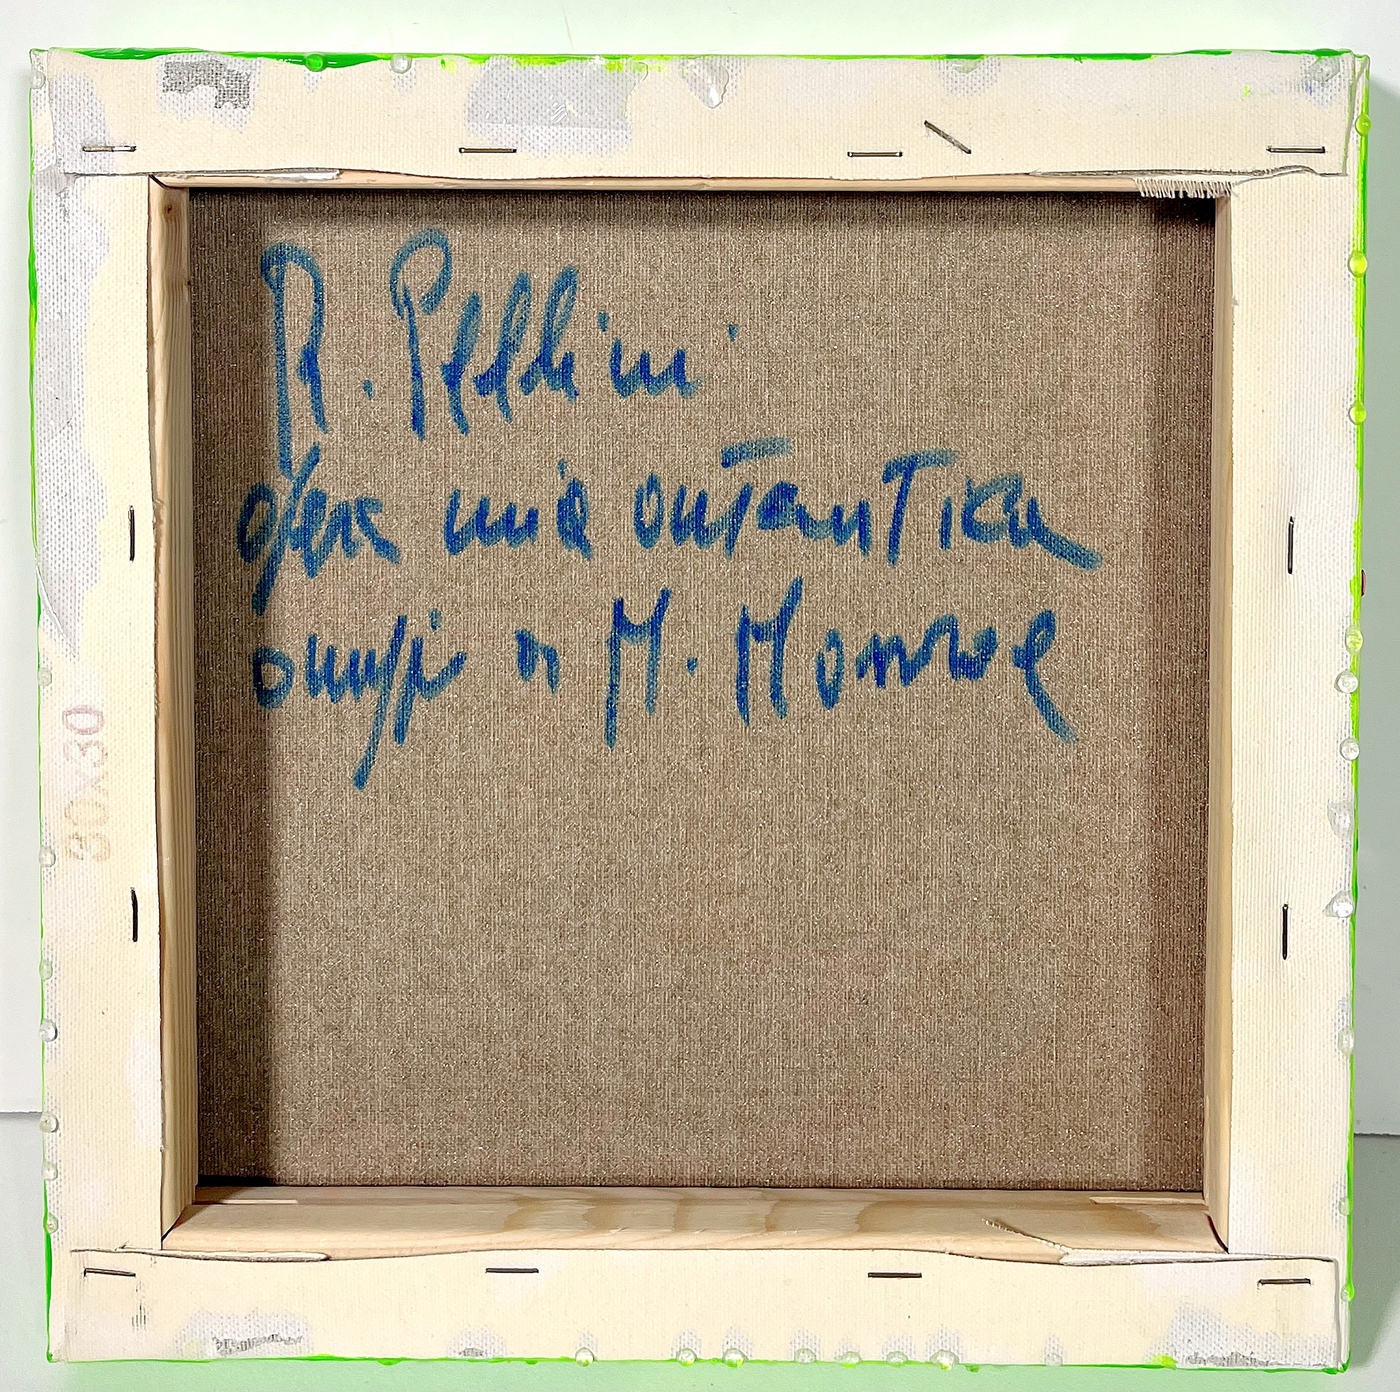 R. Pellini
opera mia autantica
omaggio a M. Monroe
30x30